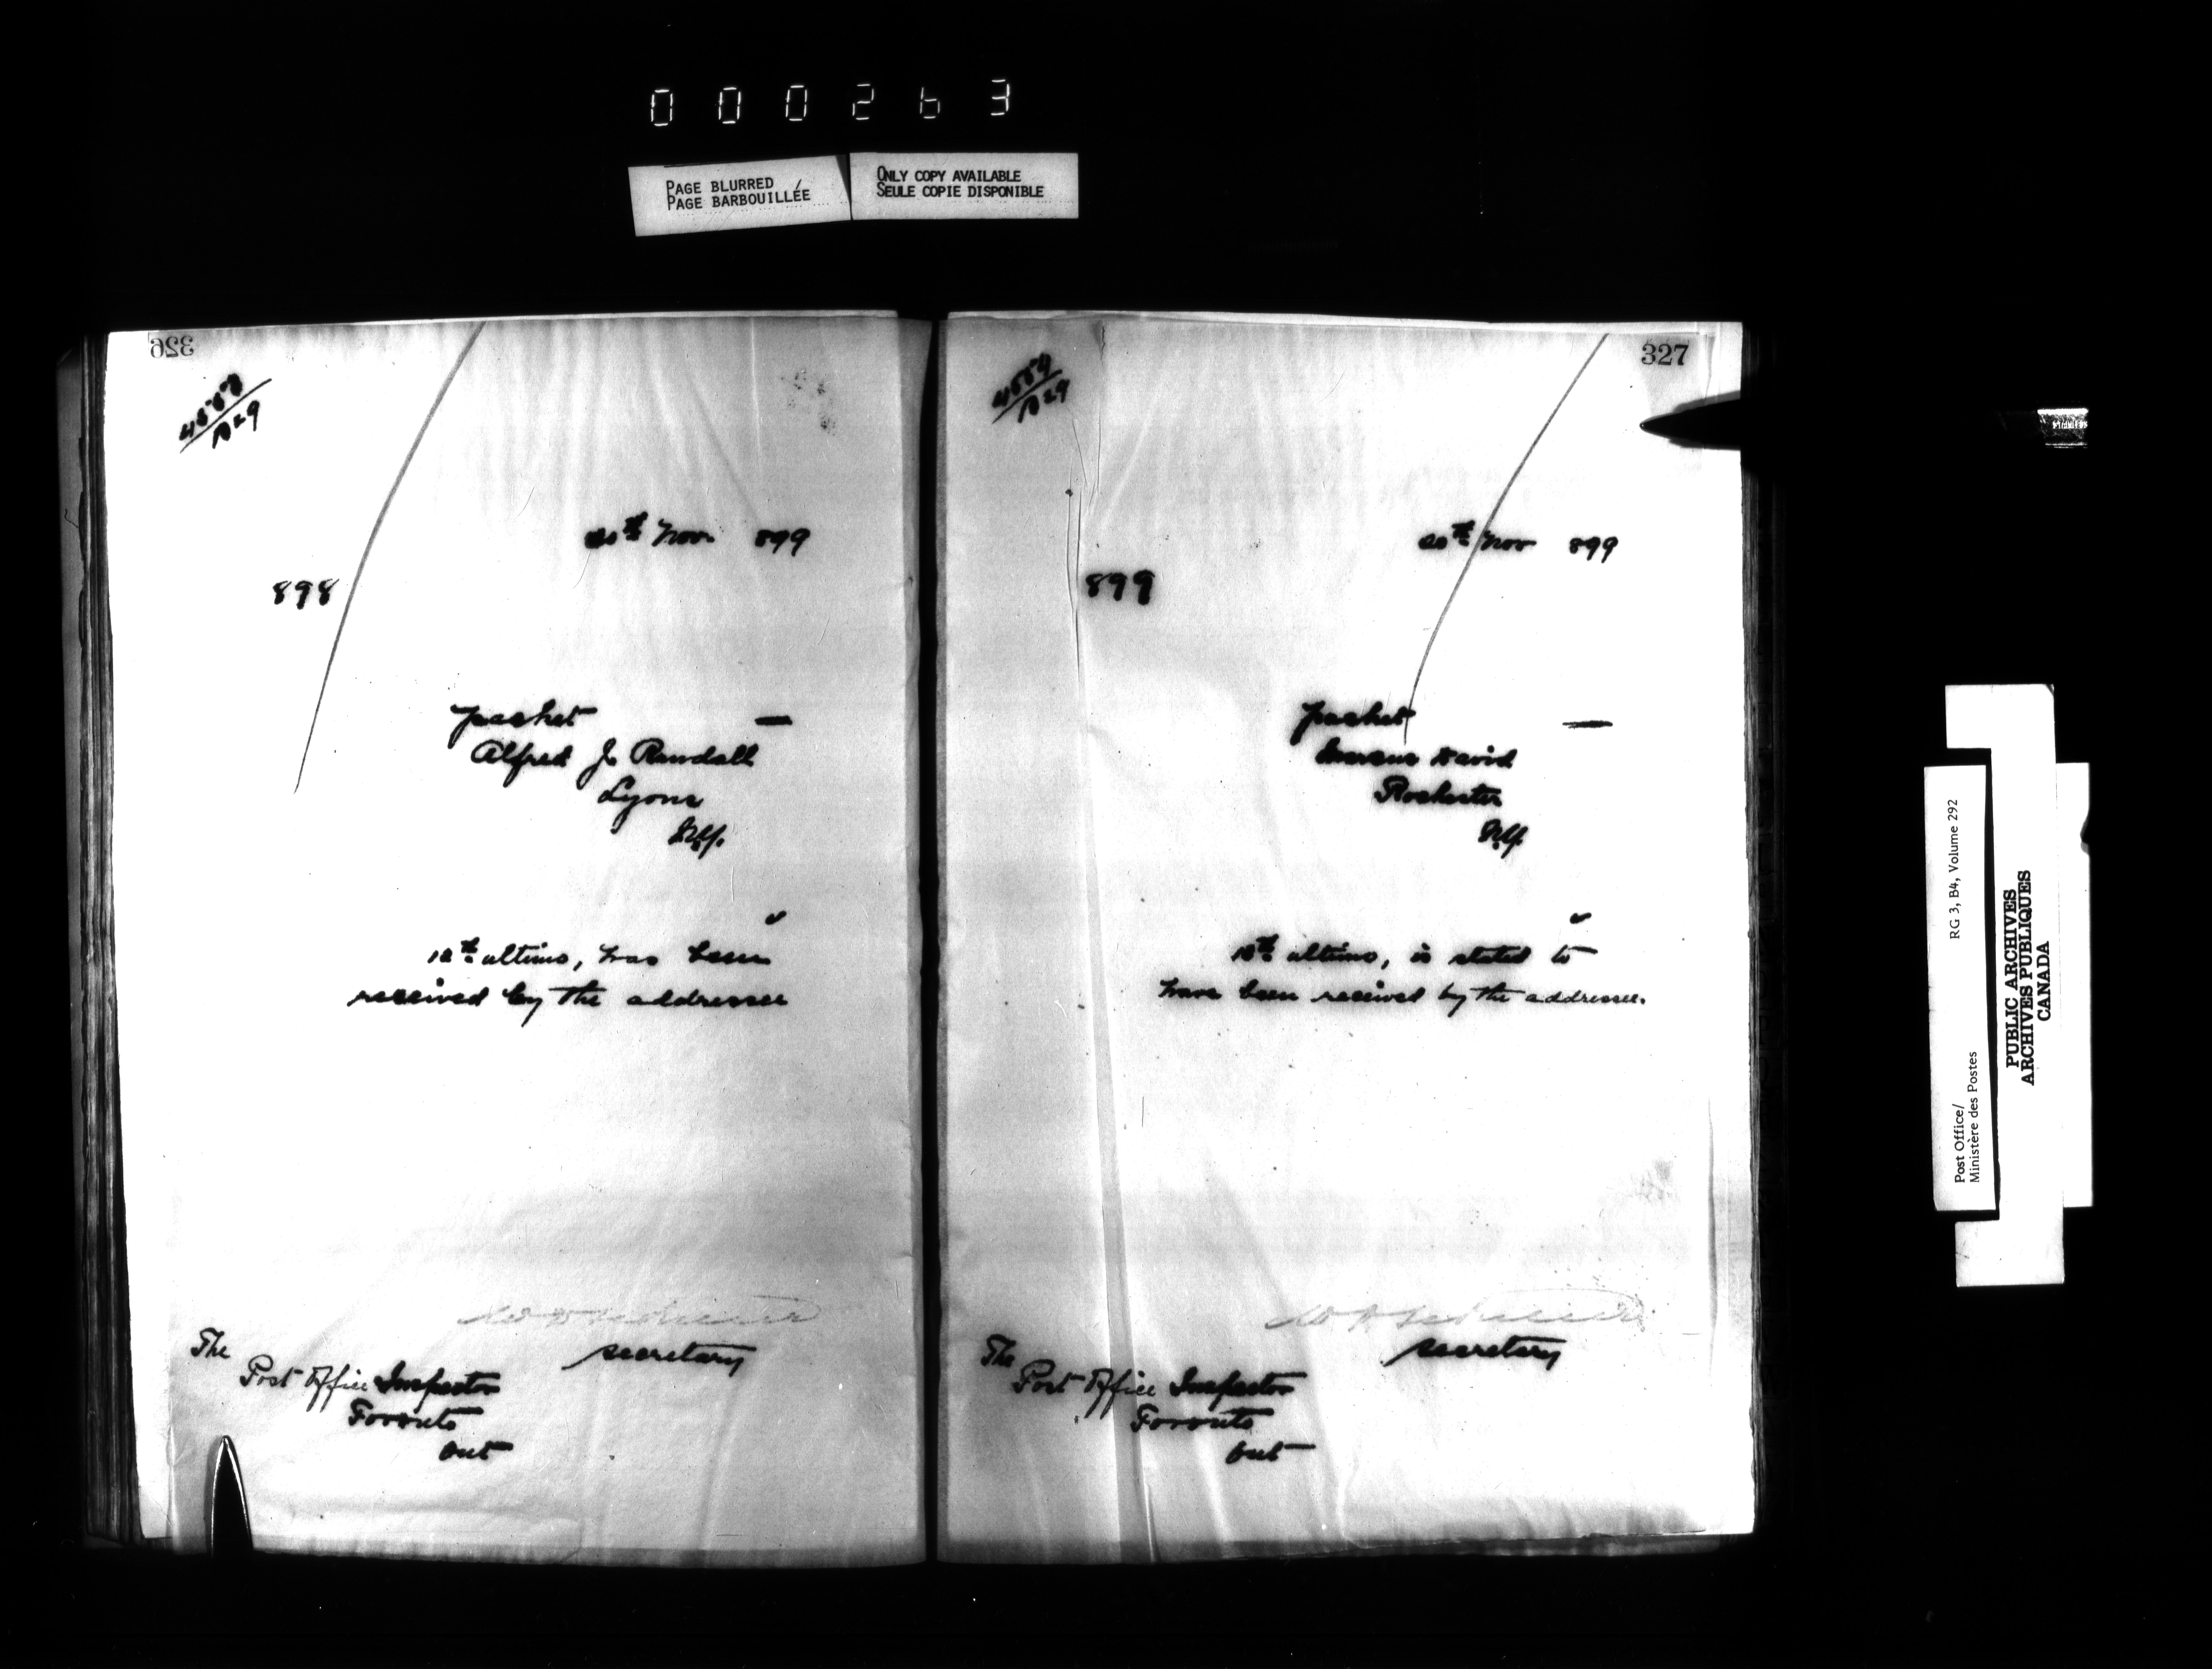 000263
PAGE BLURRED
PAGE BARBOUILLÉE
ONLY COPY AVAILABLE
SEULE COPIE DISPONIBLE
326
4558
D29
20th Nov. 899
898
packet —
Alfred J. Randall
Lyons
N.Y.
12th ultimo, has been
received by the addressee
Secretary
The
Post Office Inspector
Toronto
Ont
327
4559
D29
20th Nov 899
899
packet —
David
Rochester
N.Y.
18th ultimo, is stated to
have been received by the addressee.
Secretary
The
Post Office Inspector
Toronto
Ont
RG 3, B4, Volume 292
Post Office/
Ministère des Postes
PUBLIC ARCHIVES
ARCHIVES PUBLIQUES
CANADA